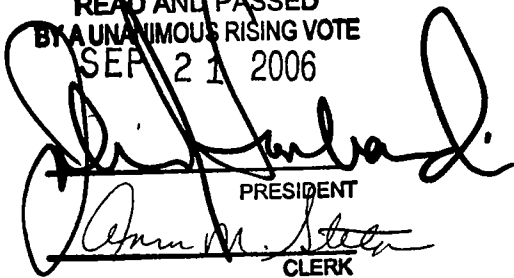 READ AND PASSED
BY A UNANIMOUS RISING VOTE
SEP 21 2006
PRESIDENT
Ann M.
CLERK